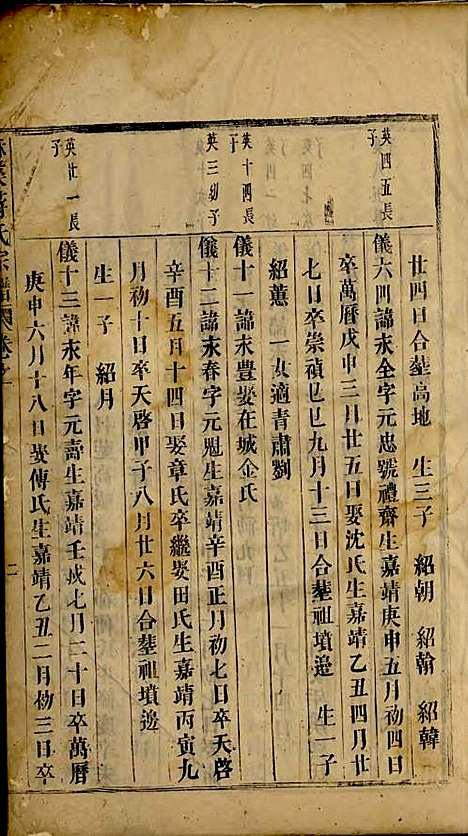 廿四日合塟高地 生三子 紹朝 紹翰 紹韓
英四五長子
儀六四諱永全字元忠號禮齋生嘉靖庚申五月初四日
卒萬曆戊申三月廿五日娶沈氏生嘉靖乙丑四月廿
七日卒崇禎己巳九月十三日合塟祖墳邉 生一子
紹蕙 一女適青肅劉
英十四長子
儀十一諱永豊娶在城金氏
英三幼子
儀十二諱永春字元魁生嘉靖辛酉正月初七日卒天啓
辛酉五月十四日娶章氏卒繼娶田氏生嘉靖丙寅九
月初十日卒天啓甲子八月廿六日合塟祖墳邊
生一子 紹月
英廿一長子
儀十三諱永年字元壽生嘉靖壬戌七月二十日卒萬曆
庚申六月十八日娶傅氏生嘉靖乙丑二月初三日卒
氏宗譜 卷之一
二